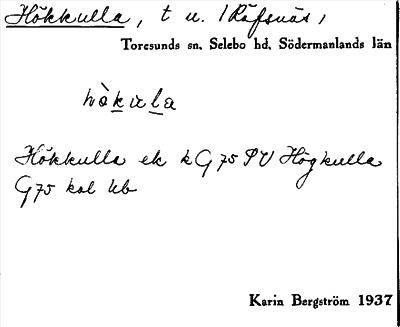 Hökkulla, t u. /Räfsnäs/
Toresunds sn, Selebo hd, Södermanlands län
hòkula
Hökkulla ek k G 75 PU Högkulla
G 75 kol hb
Karin Bergström 1937